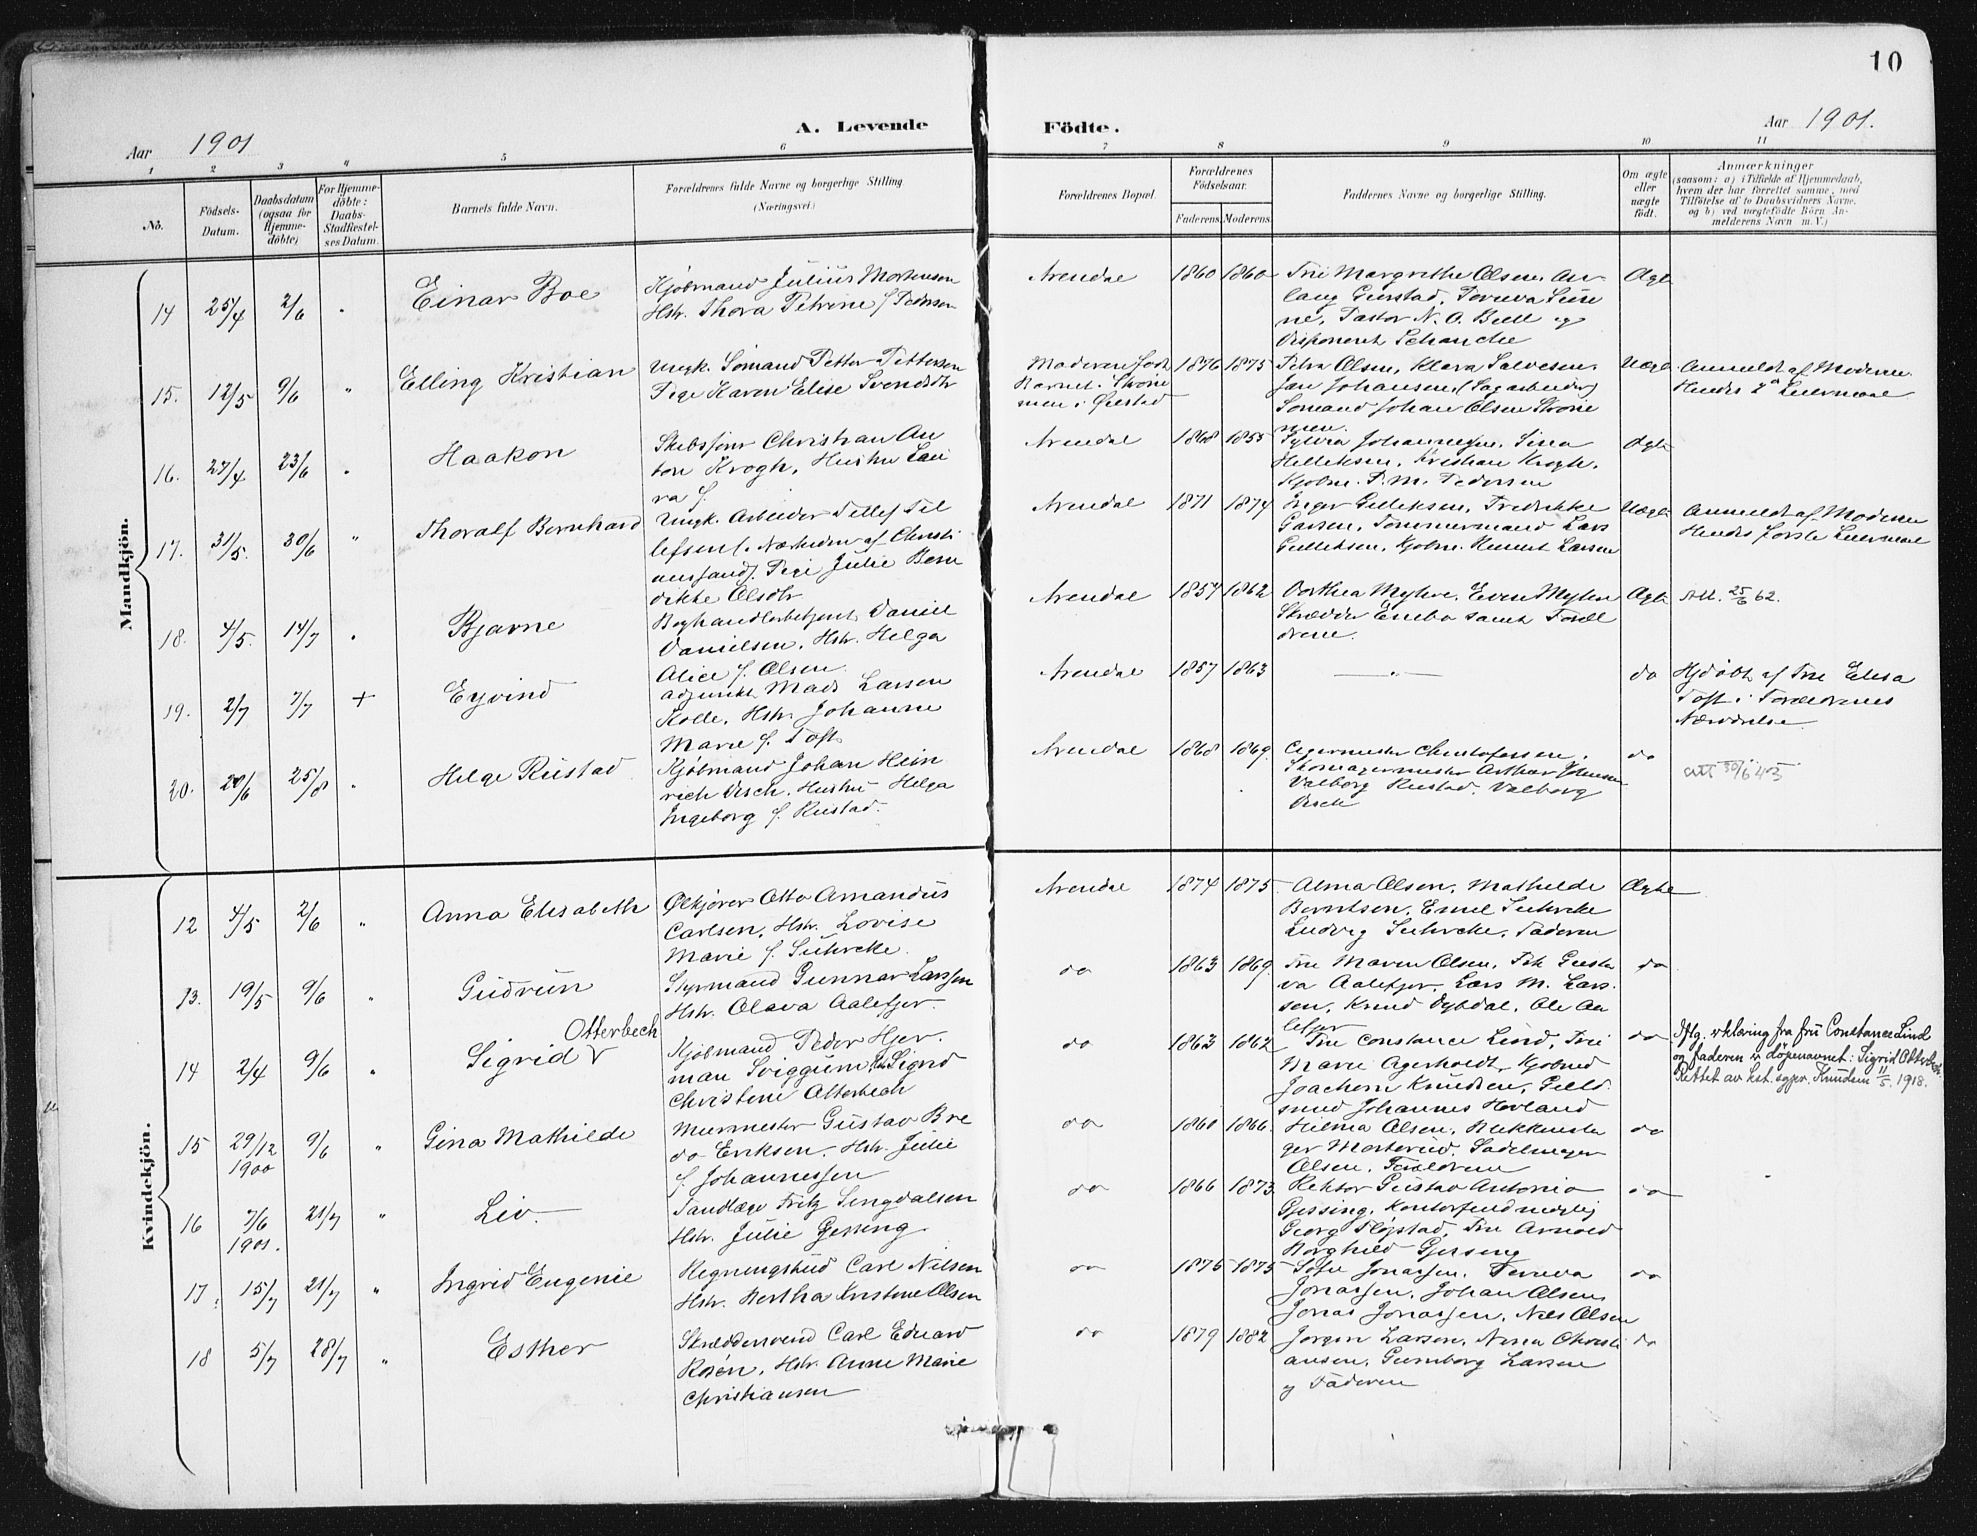 10
Aar 1901
A. Levende
Födte.
Aar 1901.
1 2 3 4 5 6 7 8 9 10 11
No.
Födsels-Datum.
Daabsdatum (ogsaa for Hjemmedöbte)
For Hjemmedöbte: Daabs-Stadfæstelses Datum.
Barnets fulde Navn.
Forældrenes fulde Navne og borgerlige Stilling
(Næringsvei.)
Forældrenes Bopæl.
Forældrenes Födselsaar.
Faderens Moderens
Faddernes Navne og borgerlige Stilling.
Om ægte eller uægte födt.
Anmærkninger
(saasom: a) i Tilfælde af Hjemmedaab,
hvem der har forrettet samme, med
Tilföielse af to Daabsvidners Navne.
og b) ved uægtefödte Börn An-
melderens Navn m. V.)
Mandkjön.
14 25/4 2/6 " Einar Boe
Kjöbmand Julius Mortensen
Hstr. Thora Petrine f. Pedersen
Arendal 1860 1860
Fru Margrethe Olsen, As-
laug Gierstad,
Pastor N. O. Bull og
Disponent Schanche
Ægte
15. 12/5 9/6 " Elling Kristian
Ungk. Sömand Petter Pettersen
Pige Karen Elise Svendsdtr
Moderen födt
Barnet.
men i Öiestad
1876 1875
Petra Olsen, Klara Salvesen
Jan Johansen, (Sagarbeider)
Sömand Johan Olsen
men.
Uægte
Anmeldt af Moderen.
Hendes 2det Leiermaal
16. 27/4 23/6 " Haakon
Skibsförer Christian An
ton Krogh, Hustru Lau
ra f.
Arendal 1868 1855
Sylvia Johannesen, Sina
Helleksen, Kristian Krogh,
Kjobm. P. M. Pedersen
Ægte
17. 31/5. 30/6 " Thoralf Bernhard
Ungk. Arbeider Detlef Tel
lefsen f. Nærheden af Christi
anssand. Pige Julie Bern
dikte Olsdtr
Arendal 1871 1874
Inger Gulleksen, Fredrikke
Larsen, Tömmermand Lars
Gulleksen, Kjobm. Larsen
Uægte
Anmeldt af Moderen
Hendes første Leiermaal
18. 4/5. 14/7 " Bjarne
Boghandlerbetjent Daniel
Danielsen, Hstr. Helga
Alice f. Olsen
Arendal 1857 1862
Dorthea Myhre, Even Myhre
Skrædder Enebo samt Foræl
drene.
Ægte
Att. 25/6 62.
19. 2/7 7/7 + Eyvind
adjunkt Mads Larsen
Kolle, Hstr. Johanne
Marie f. Toft
Arendal 1857 1863
— " —
do
Hjdøbt af Fru Elisa
Toft i Forældrenes
Nærværelse
20. 20/6 25/8 " Helge Rustad
Kjöbmand Johan Hein
rich Disch, Hustru Helga
Ingeborg f. Rustad.
Arendal 1868 1869.
Christofersen,
Skomagermester Arthur Johnsen
Valborg Rustad, Valborg
Disch
do
att 30/6 43
Kvindekjön.
12 4/5 2/6 " Anna Elisabeth
Ølkjører Otto Amandus
Carlsen, Hstr. Lovise
Marie f. Suhrcke.
Arendal 1874 1875.
Alma Olsen, Mathilde
Berntsen, Emil Suhrcke
Ludvig Suhrcke, Faderen
Ægte
13. 19/5 9/6 " Gudrun
Styrmand Gunnar Larssen
Hstr. Olava Aalefjær.
do 1863 1869.
Fru Maren Olsen, Frk Gusta
va Aalefjær, Lars M. Lars
sen, Knud Dybdal, Ole Aa
lefjær
do
14 2/4 9/6 " Sigrid v Otterbech
Kjöbmand Peder Hjer
man Sviggum, Hstr Sigrid
Christine Otterbech
do 1863 1862
Fru Constance Lind, Fru
Marie Agerholdt, Kjobmd
Joachim Knudsen, Fuld
Johannes Hovland
do
Iflg. erklæring fra fru Constance Lind
og faderen er döpenavnet: Sigrid Otterbech.
Rettet av kst. sogpr. Knudsen 11/5. 1918.
15 29/12 1900 9/6 " Gina Mathilde
Murmester Gustav Bre
do Eriksen, Hstr. Julie
f. Johannessen
do 1860 1866.
Hilma Olsen, Blikkensla
ger Morterud, Sadelmager
Olsen, Forældrene
do
16 7/6 1901. 21/7 " Liv.
Tandlæge Fritz Sengdalsen
Hstr. Julie Gjessing.
do 1866 1873.
Rektor Gustav Antonio
Gjessing, Kontorfuldmægtig
Georg Fløistad, Fru Arnold
Borghild Gjessing
do
17. 15/7 21/7 " Ingrid Eugenie
Regningsbud Carl Nilsen
Hstr. Bertha Kristine Olsen
do 1875 1875
Sofie Jonassen, Tereva
Jonassen, Johan Olsen,
Jonas Jonassen, Nils Olsen
do
18 5/7 28/7 " Esther
Skræddersvend Carl Eduard
Rosén, Hstr. Anne Marie
Christiansen
do 1879 1882
Jörgen Larsen, Christi
ansen, Gunborg Larsen
og Faderen
do